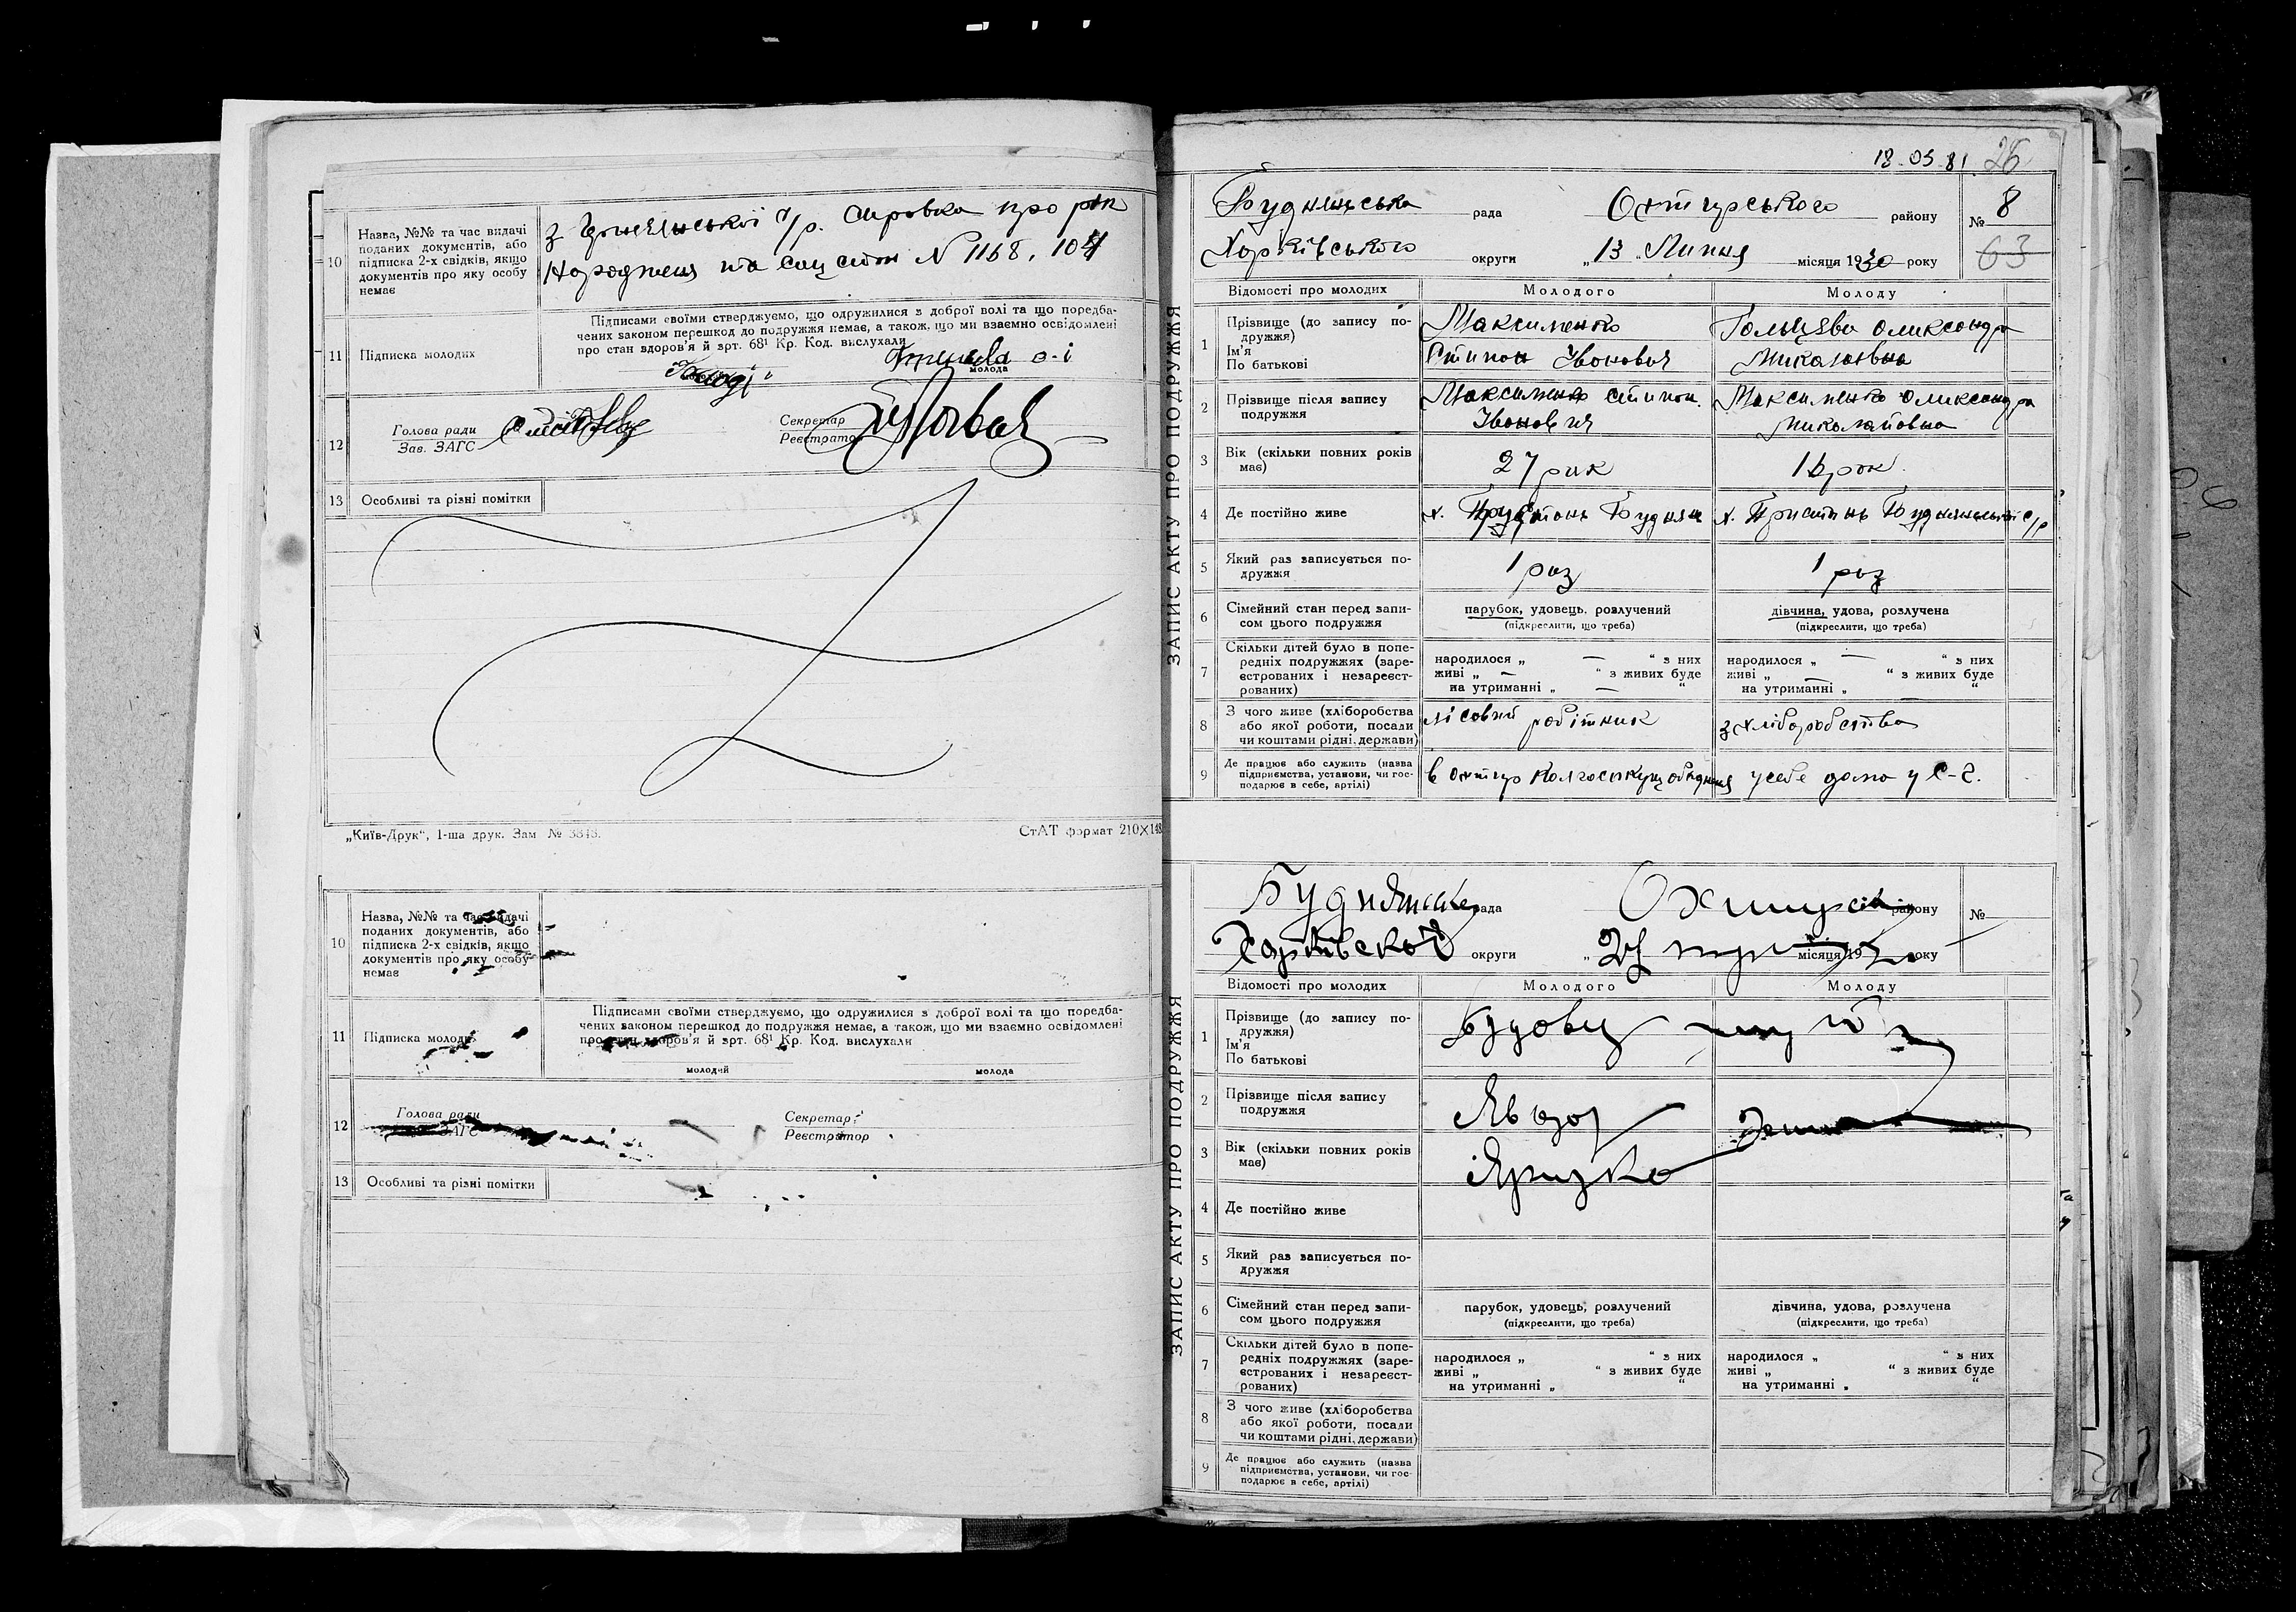 10 Назва, №№ та час видачі
поданих документів, або
підписка 2-х свідків, якщо
документів про яку особу
немає
с/р. справка про рік
народженя та соц стан № 1168, 104
11 Підписка молодих
Підписами своїми стверджуємо, що одружилися з доброї волі та що поредба-
чених законом перешкод до подружжя немає, а також, що ми взаємно освідомлені
про стан здоров'я й зрт. 68¹ Кр. Код. вислухали
молода
12 Голова ради
Зав. ЗАГС
Секретар
Реєстратор
13 Особливі та різні помітки
„Київ-Друк“, 1-ша друк. Зам № 3343.
СтАТ формат 210×148
10 Назва, №№ та час видачі
поданих документів, або
підписка 2-х свідків, якщо
документів про яку особу
немає
11 Підписка молодих
Підписами своїми стверджуємо, що одружилися з доброї волі та що поредба-
чених законом перешкод до подружжя немає, а також, що ми взаємно освідомлені
про стан здоров'я й зрт. 68¹ Кр. Код. вислухали
молодий молода
12 Голова ради
ЗАГС
Секретар
Реєстратор
13 Особливі та різні помітки
18-03-81 26
ЗАПИС АКТУ ПРО ПОДРУЖЖЯ
Буднянська рада Охтирського району № 8
Харківського округи „13 „ Липня місяця 1930 року 63
Відомості про молодих Молодого Молоду
1 Прізвище (до запису по-
дружжя)
Ім'я
По батькові
Максименко
Степан Іванович
Гольцева олександра
Миколаївна
2 Прізвище після запису
подружжя
Максименко степан
Іванович
Максименко олександра
миколаївна
3 Вік (скільки повних років
має)
27 рик 18 рок
4 Де постійно живе
х. Пристань Будням
х. Пристань Буднянської с/р
5 Який раз записується по-
дружжя
1 раз 1 раз
6 Сімейний стан перед запи-
сом цього подружжя
парубок, удовець, розлучений
(підкреслити, що треба)
дівчина, удова, розлучена
(підкреслити, що треба)
7 Скільки дітей було в попе-
редніх подружжях (заре-
єстрованих і незареєст-
рованих)
народилося „ — “ з них
живі „ — “ з живих буде
на утриманні „ — “
народилося „ — “ з них
живі „ — “ з живих буде
на утриманні „ — “
8 З чого живе (хліборобства
або якої роботи, посади
чи коштами рідні, держави)
лісовий робітник
з хліборобства
9 Де працює або служить (назва
підприємства, установи, чи гос-
подарює в себе, артілі)
в охтир
у себе дома у С-г.
ЗАПИС АКТУ ПРО ПОДРУЖЖЯ
рада району №
округи „ місяця 19 року
Відомості про молодих Молодого Молоду
1 Прізвище (до запису по-
дружжя)
Ім'я
По батькові
2 Прізвище після запису
подружжя
3 Вік (скільки повних років
має)
4 Де постійно живе
5 Який раз записується по-
дружжя
6 Сімейний стан перед запи-
сом цього подружжя
парубок, удовець, розлучений
(підкреслити, що треба)
дівчина, удова, розлучена
(підкреслити, що треба)
7 Скільки дітей було в попе-
редніх подружжях (заре-
єстрованих і незареєст-
рованих)
народилося „ “ з них
живі „ “ з живих буде
на утриманні „ “
народилося „ “ з них
живі „ “ з живих буде
на утриманні „ “
8 З чого живе (хліборобства
або якої роботи, посади
чи коштами рідні, держави)
9 Де працює або служить (назва
підприємства, установи, чи гос-
подарює в себе, артілі)